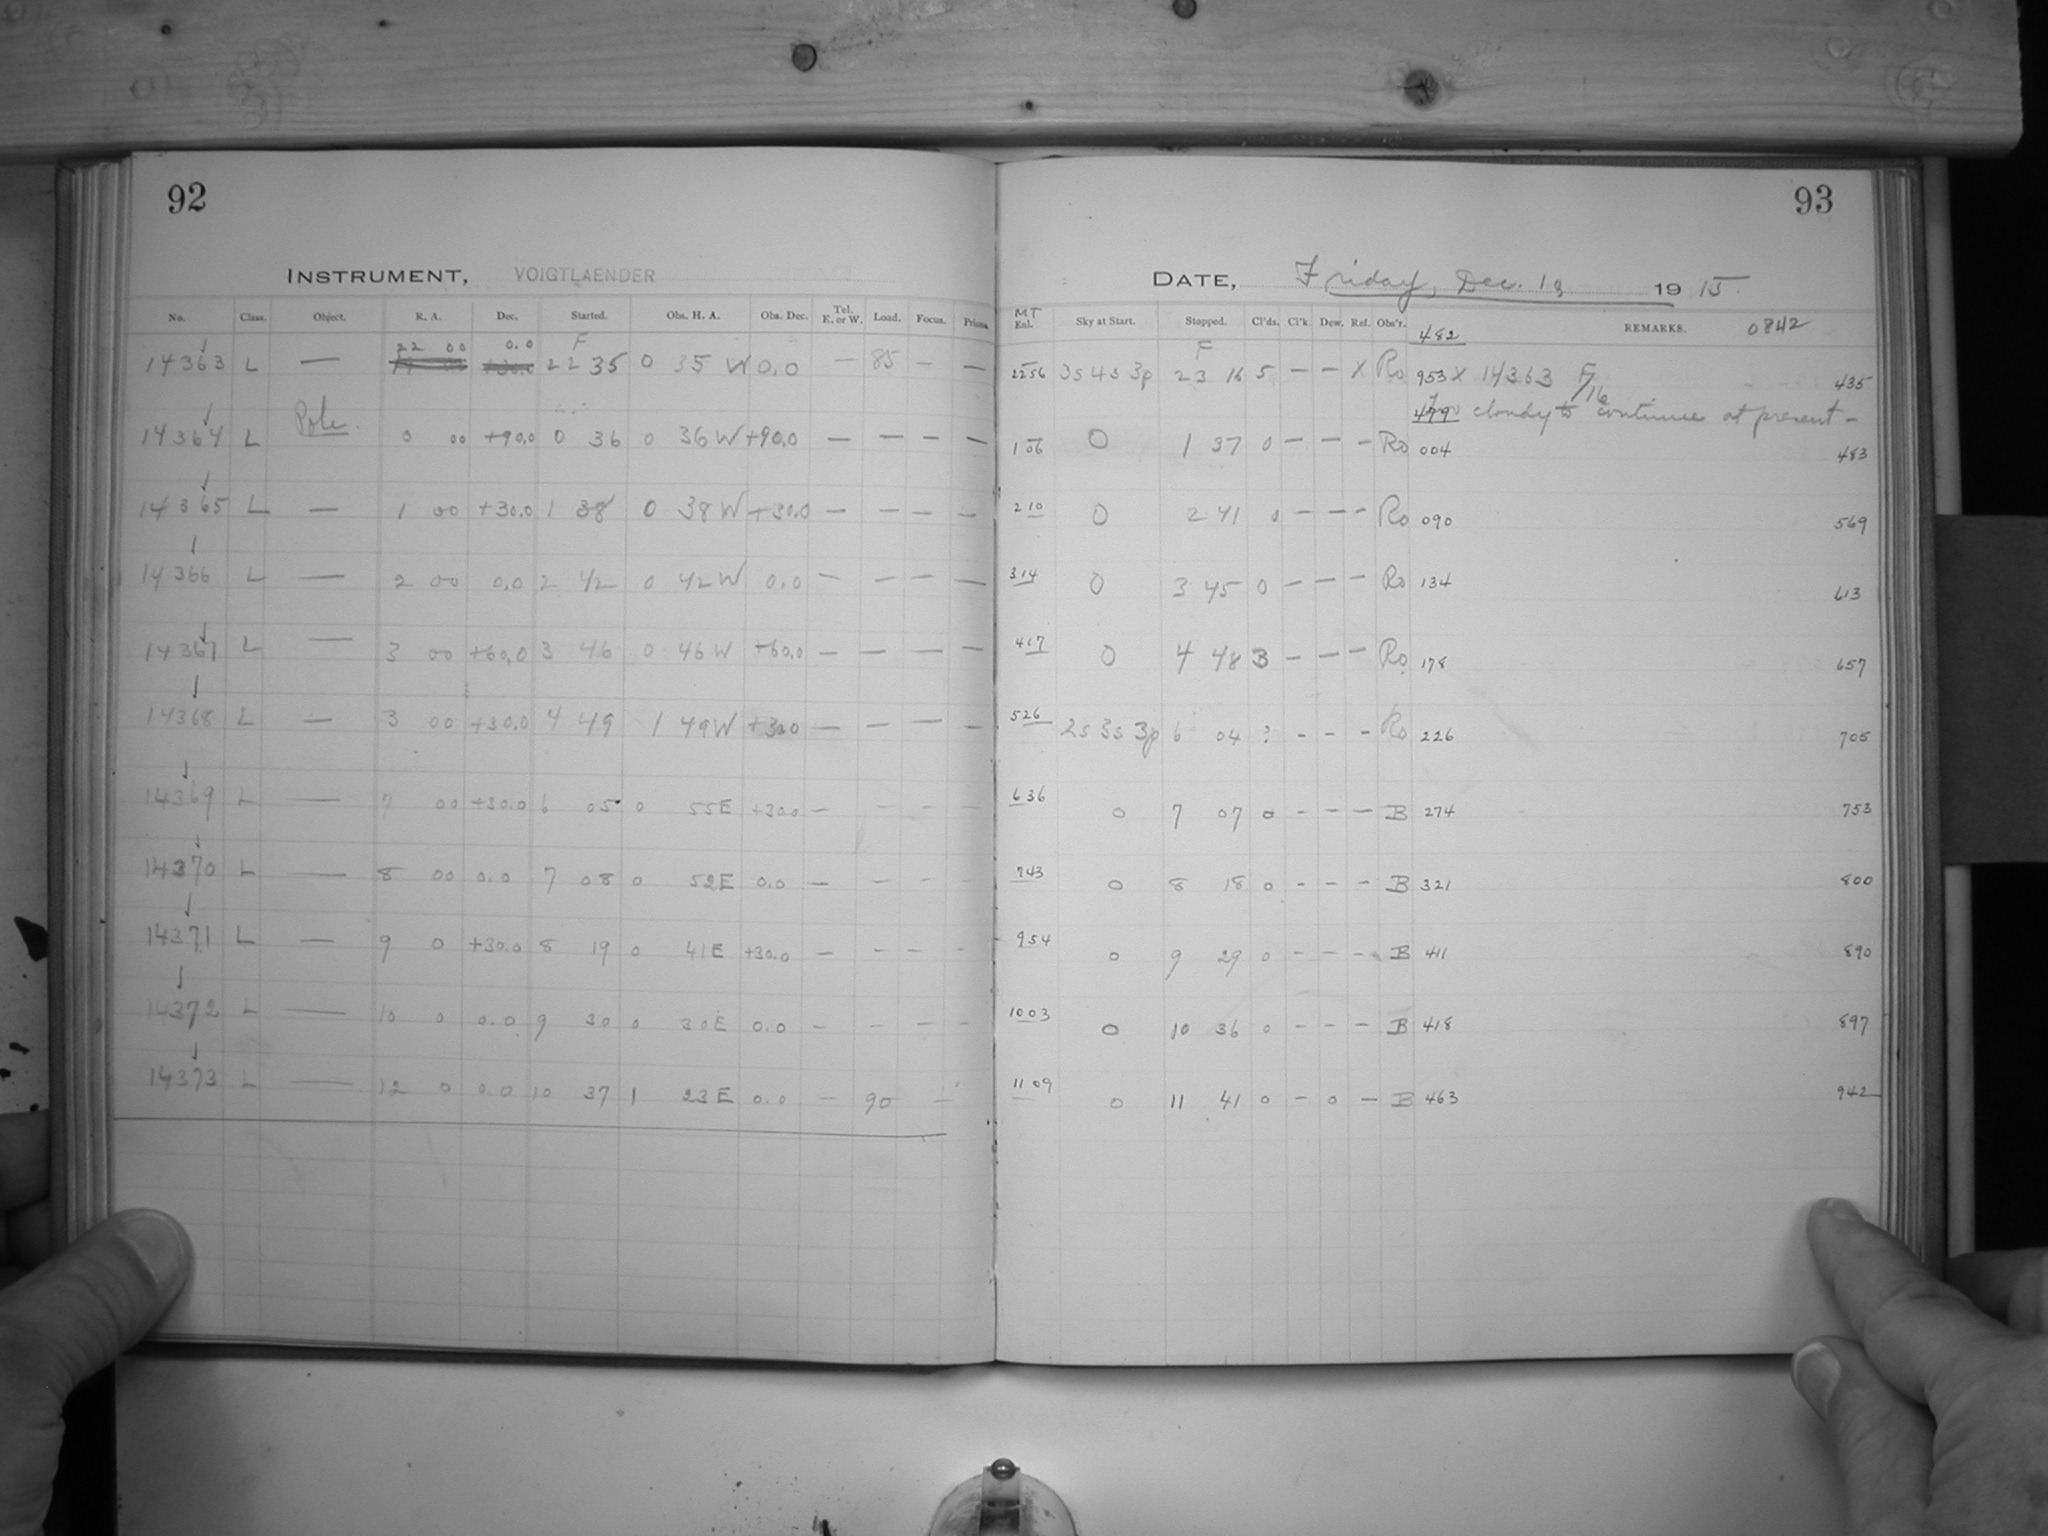 92
INSTRUMENT, VOIGTLAENDER
No. Class. Object. R. A. Dec. Started. Obs. H. A. Obs. Dec. Tel. E. or W. Load. Focus. Prisms.
22 00 0.0 F
14363 L — 0.0 22 35 0 35 W 0.0 — 85 — —
14364 L Pole. 0 00 +90.0 0 36 0 36 W +90.0 — — — —
14365 L — 1 00 +30.0 1 38 0 38 W +30.0 — — — —
14366 L — 2 00 0.0 2 42 0 42 W 0.0 — — — —
14367 L — 3 00 +60.0 3 46 0 46 W +60.0 — — — —
14368 L — 3 00 +30.0 4 49 1 49 W +30.0 — — — —
14369 L — 7 00 +30.0 6 05 0 55 E +30.0 — — — —
14370 L — 8 00 0.0 7 08 0 52 E 0.0 — — — —
14371 L — 9 0 +30.0 8 19 0 41 E +30.0 — — — —
14372 L — 10 0 0.0 9 30 0 30 E 0.0 — — — —
14373 L — 12 0 0.0 10 37 1 23 E 0.0 — 90 —
93
DATE, Friday, Dec. 1915.
MT
Exl. Sky at Start. Stopped. Cl'ds. Cl'k. Dew. Ref. Obs'r. 482 REMARKS. 0842
F
2256 3s 4s 3p 23 16 5 — — X Ro 953 X 14363 F/16 435
479 cloudy to continue at present —
1 06 0 1 37 0 — — — Ro 004 483
2 10 0 2 41 0 — — — Ro 090 569
3 14 0 3 45 0 — — — Ro 134 613
4 17 0 4 48 3 — — — Ro 178 657
5 26 2s 3s 3p 6 04 ? - - - Ro 226 705
6 36 0 7 07 0 - - — B 274 753
7 43 0 8 18 0 - - - B 321 800
9 54 0 9 29 0 - - - B 411 890
10 03 0 10 36 0 - - - B 418 897
11 09 0 11 41 0 - 0 — B 463 942